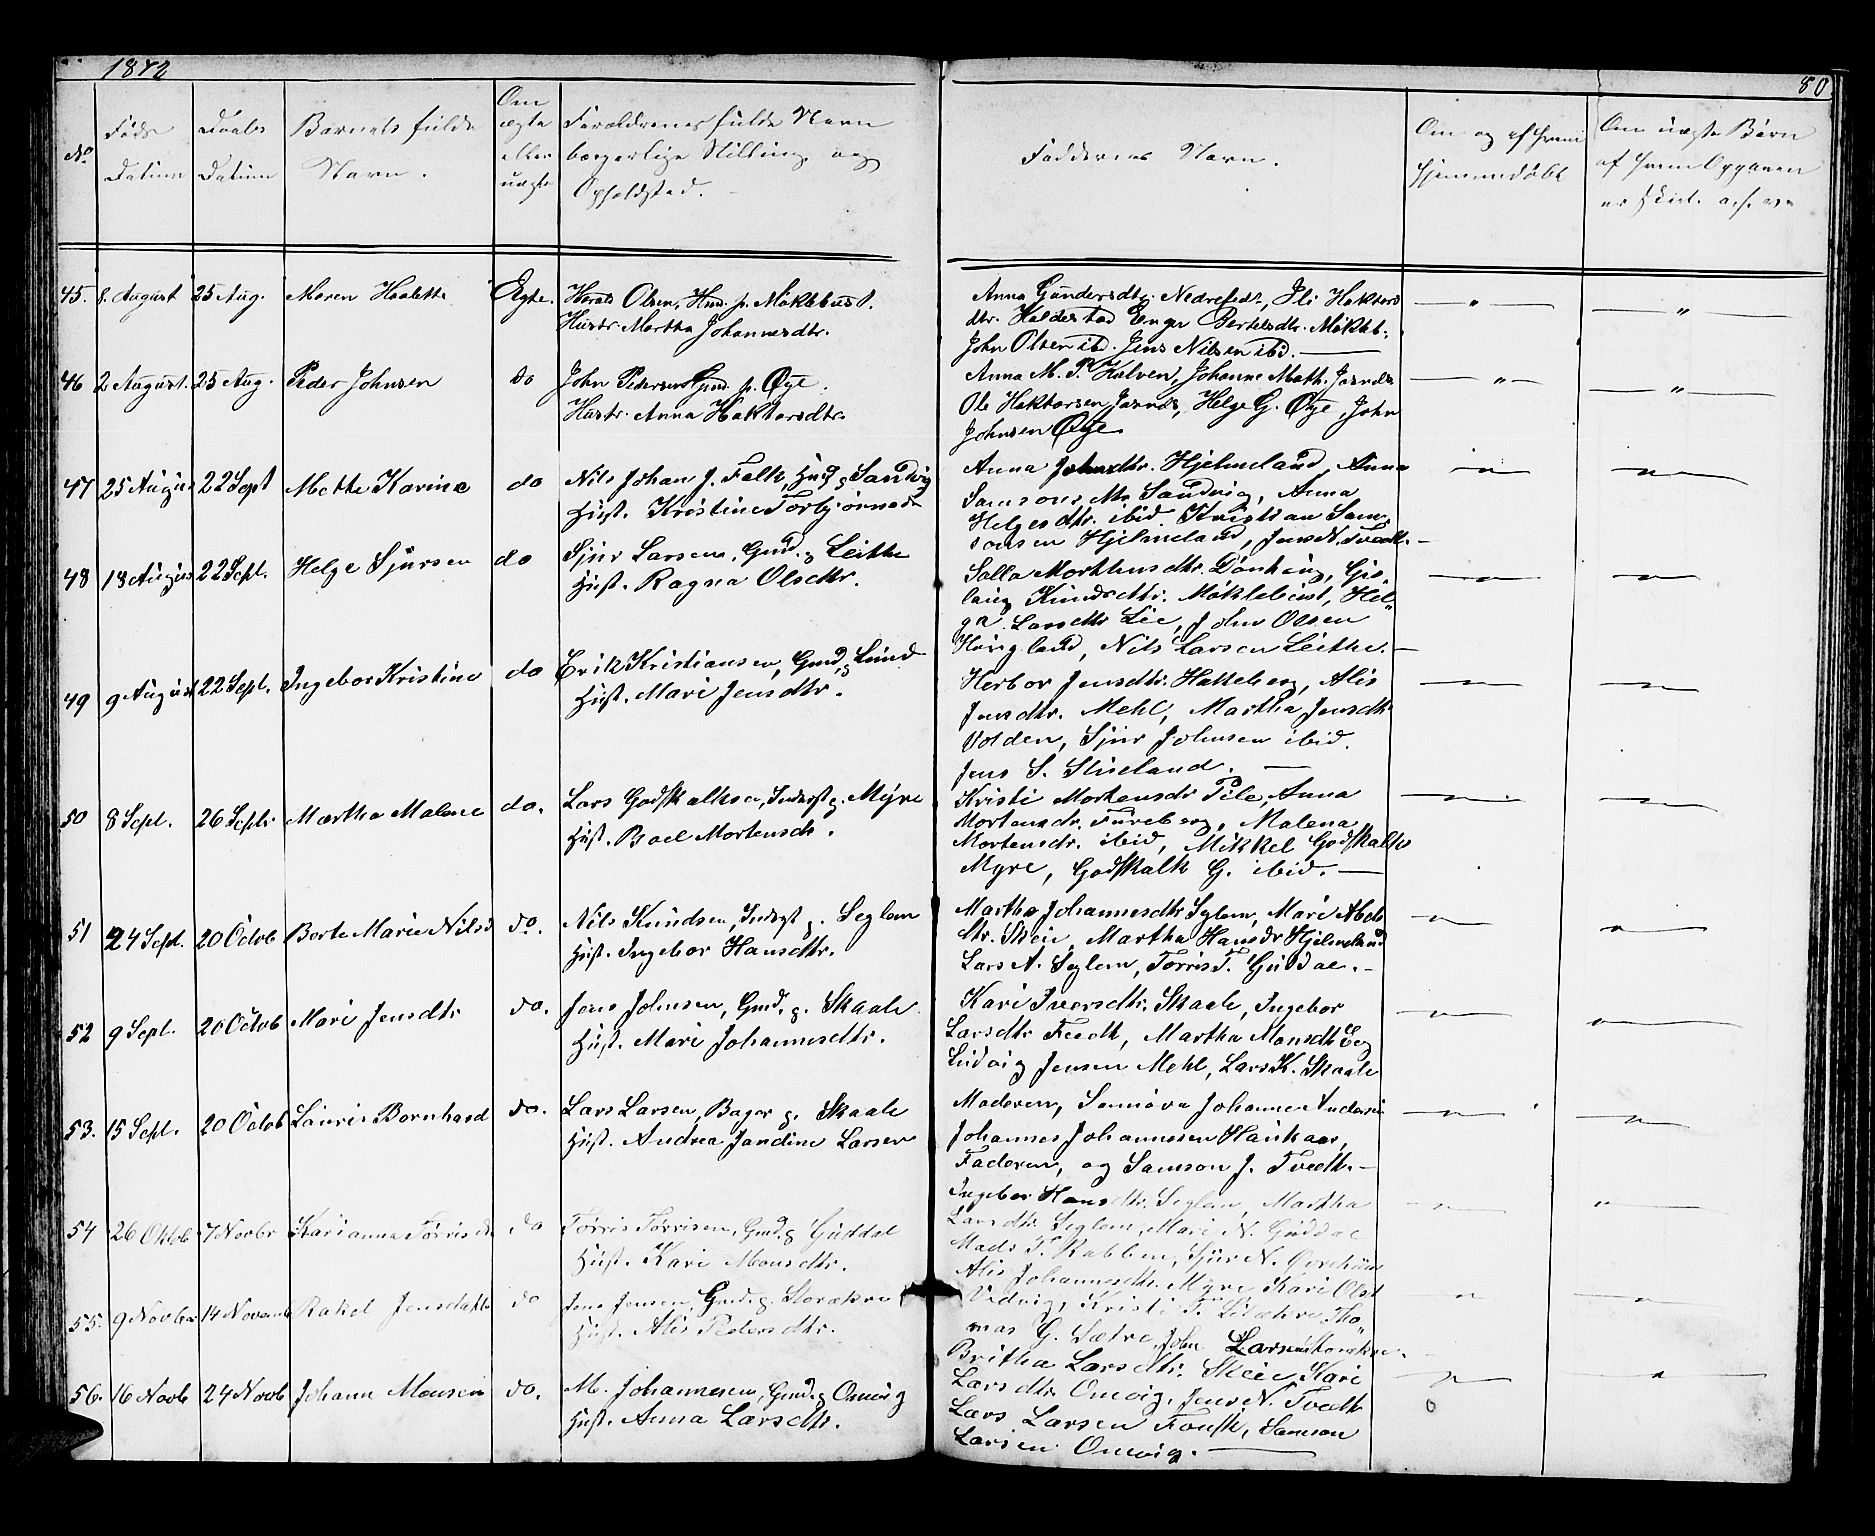 1872
80
No
Føds
Datum
Daabs
Datum
Barnets fulde
Navn.
Om
ægte
eller
uægte
Forældrenes fulde Navn
borgerlige Stilling og
Opholdsted.
Faddernes Navn.
Om og af hvem
hjemmedøbt
Om uægte Børn
af hvem Opgaven
er skeet
45. 8. August 25 Aug. Maren Haalette Ægte. Harals Olsen, Gmd. p. Møklebust.
Hustr. Martha Johannesdtr.
Anna Gundersdtr. Nedrefedt, Ili Haktors
dtr. Haldestad Enger Bertelsdtr. Møkleb.
John Olsen ibd. Jens Nilsen ibi.
46 2 August. 25 Aug. Peder Johnsen do John Pedersen Gmd. p. Øye.
Hustr. Anna Haktorsdtr.
Anna M. P. Halven, Johanne Math.
Ole Haktorsen, Helge G. Øye, John
Johnsen Øye
47 25 August 22 Sept Mette Karine do Nils Johan J. Falk, Sandvig
Hust. Kristine Torbjørnsdtr
Anna Johnsdtr. Hjelmeland, Anna
Samsonsdtr Sandvig, Anna
Helgesdtr. ibid. Kristian Sam-
sonsen Hjelmeland, Jens N. Tvedt.
48 18 August 22 Sept. Helge Sjursen do Sjur Larsen, Gmd. g. Leithe
Hust. Ragna Olsdtr.
Salla Morthensdtr. Dønhaug, Gjø-
laug Knudsdtr. Møklebust, Hel-
ga Larsdtr Lie, John Olsen
Haugland, Nils Larsen Leithe.
49 9 August 22 Sept. Ingebor Kristine do Erik Kristiansen, Gmd. g. Lund
Hust. Mari Jensdtr.
Herbor Jensdtr. Hatteberg, Alis
Jensdtr. Mehl, Martha Jensdtr
Volden, Sjur Johnsen ibid.
Jens S.
50 8 Sept. 26 Septr Martha Malene do. Lars Godskalksen, Inderst g. Myre
Hust. Boel Mortensdtr.
Kristi Mortensdr Pile, Anna
Mortensdr. Fureberg, Malena
Mortensdr. ibid, Mikkel Godskalks
Myre, Godskalk G. ibid.
51 24 Sept. 20 Octob Berte Marie Nilsd do. Nils Knudsen, Inderst g. Seglem
Hust. Ingebor Hansdtr.
Martha Johannesdtr Seglem, Mari
dtr. Skeie, Martha Hansdr Hjelmeland
Lars A. Seglem, Torris T. Guddal.
52 9 Sept. 20 Octob Mari Jensdtr do. Jens Johnsen, Gmd. g. Skaale
Hust. Mari Johannesdtr.
Kari Iversdtr. Skaale, Ingebor
Larsdtr Feedt, Martha Monsdtr Eeg
Ludvig Jensen Mehl, Lars K. Skaale
53. 15 Sept. 20 Octob Lauris Bernhard do. Lars Larsen, Bager g. Skaale
Hust. Andrea Jandine Larsen
Moderen, Sunniva Johanne Andersen
Johannes Johannesen Haukaas,
Faderen, og Samson J. Tvedt.
54 26 Oktb 7 Novbr Karianna Torrisdr do Torris Torrisen, Gmd. g. Guddal
Hust. Kari Monsdtr.
Ingebor Hansdtr. Seglem, Martha
Larsdtr. Seglem, Mari N. Guddal
Mads T. Rabben, Sjur N.
55. 9 Novber 14 Novemb Rakel Jensdatter do Jens Jensen, Gmd. g. Storækre
Hust. Alis Pedersdtr.
Alis Johannesdtr. Myre, Kari Olsd
Vedvig, Kristi T. Litlækre, Tho-
mas G. Sætre, John Larsen Storækre.
56. 16 Novb 24 Novb Johann Monsen do. M. Johannesen, Gmd. g. Omvig
Hust. Anna Larsdtr.
Britha Larsdtr. Skeie, Kari
Larsdtr Omvig, Jens N. Tvedt
Lars Larsen, Samson
Larsen Omvig.